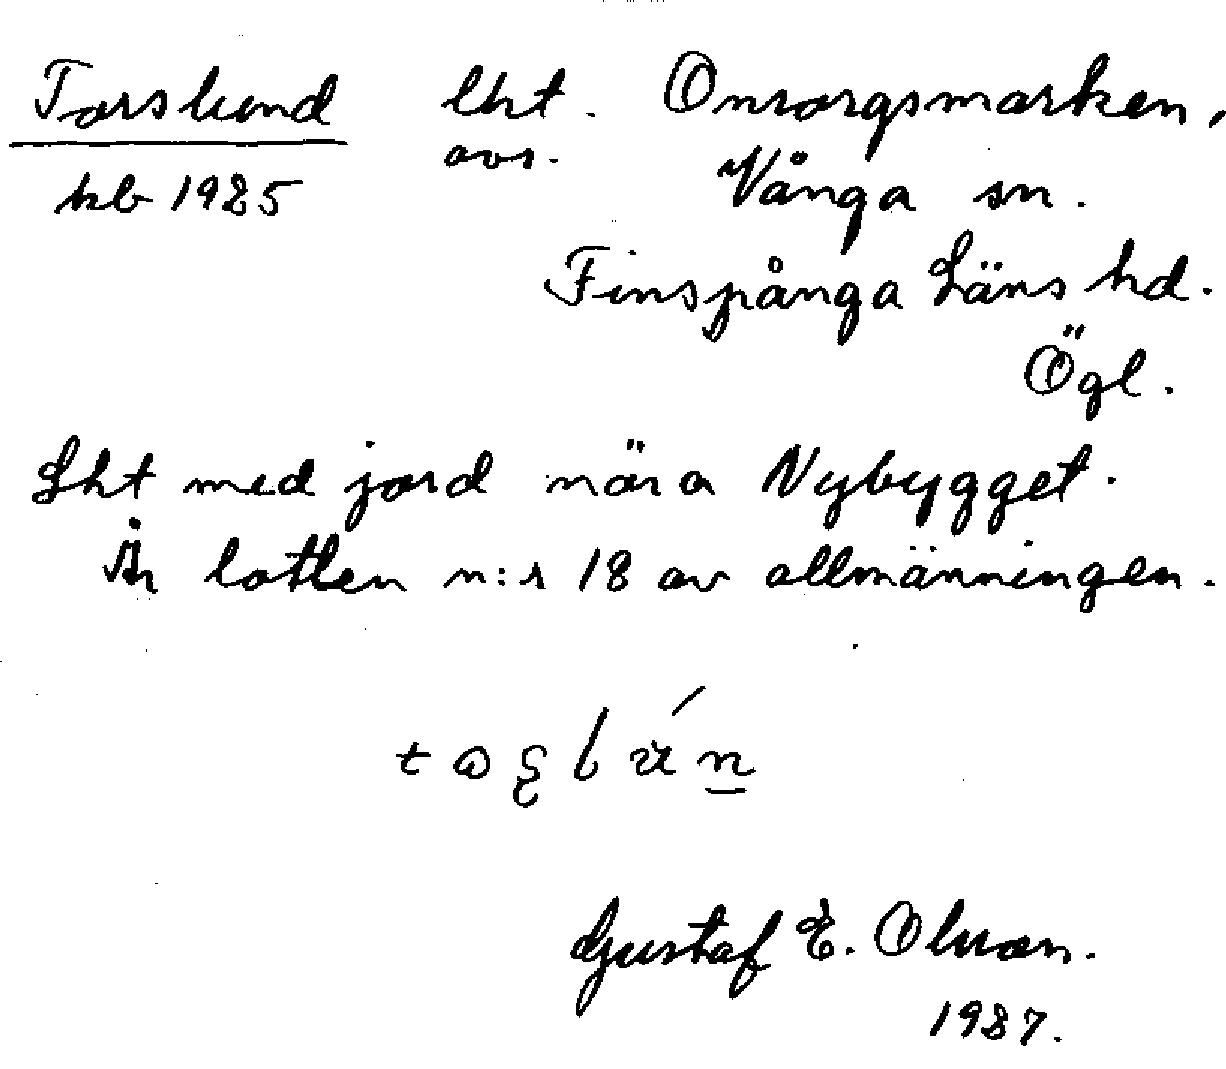 Torslund lht. Onsorgsmarken,
kb 1925 avs. Vånga sn.
Finspånga Läns hd.
Ögl.
Lht med jord nära Nybygget.
Är lotten n:r 18 av allmänningen.
Gustaf E. Olsson.
1937.